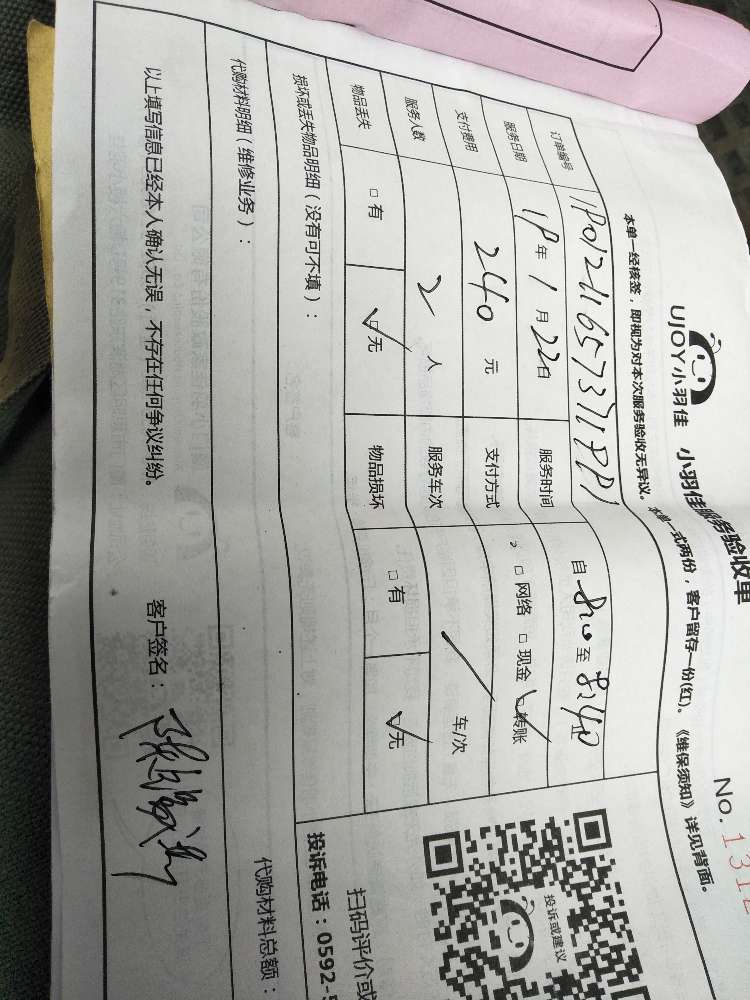 UJOY小羽佳 小羽佳服务验收单
No. 1312
本单一经核签，即视为对本次服务验收无异议。 本单一式两份，客户留存一份(红)。《维保须知》详见背面。
订单编号
服务日期 19年1月22日 服务时间 自 8:00 至
支付费用 240 元 支付方式 □ 网络 □ 现金 □ 转账
服务人数 2 人 服务车次 / 车/次
物品丢失 □ 有 □ 无 物品损坏 □ 有 □ 无
损坏或丢失物品明细（没有可不填）：
代购材料明细（维修业务）：
代购材料总额：
以上填写信息已经本人确认无误，不存在任何争议纠纷。 客户签名：
投诉或建议
扫码评价或
投诉电话：0592-5